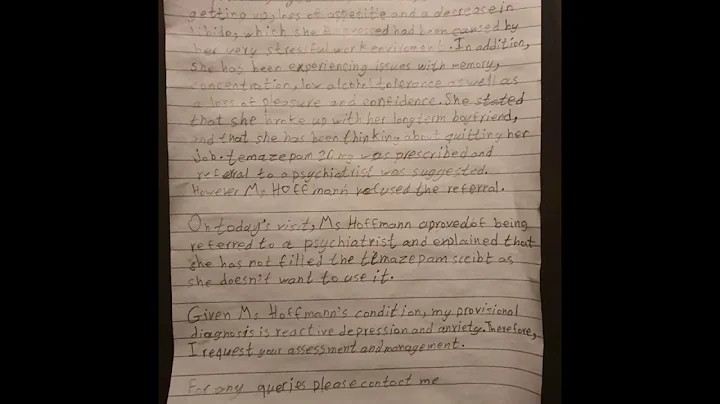 getting up, loss of appetite and a decrease in
libido, which she had been caused by
her very stressful work enviroment. In addition,
she has been experiencing issues with memory,
concentration, low alcohol tolerance as well as
a loss of pleasure and confidence. She stated
that she broke up with her longterm boyfriend,
and that she has been thinking about quitting her
job. temazepam mg was prescribed and
referal to a psychiatrist was suggested.
However Ms Hoffmann refused the referral.
On today's visit, Ms Hoffmann aproved of being
referred to a psychiatrist and explained that
she has not filled the temazepam as
she doesn't want to use it.
Given Ms Hoffmann's condition, my provisional
diagnosis is reactive depression and anxiety. Therefore,
I request your assessment and management.
For any queries please contact me